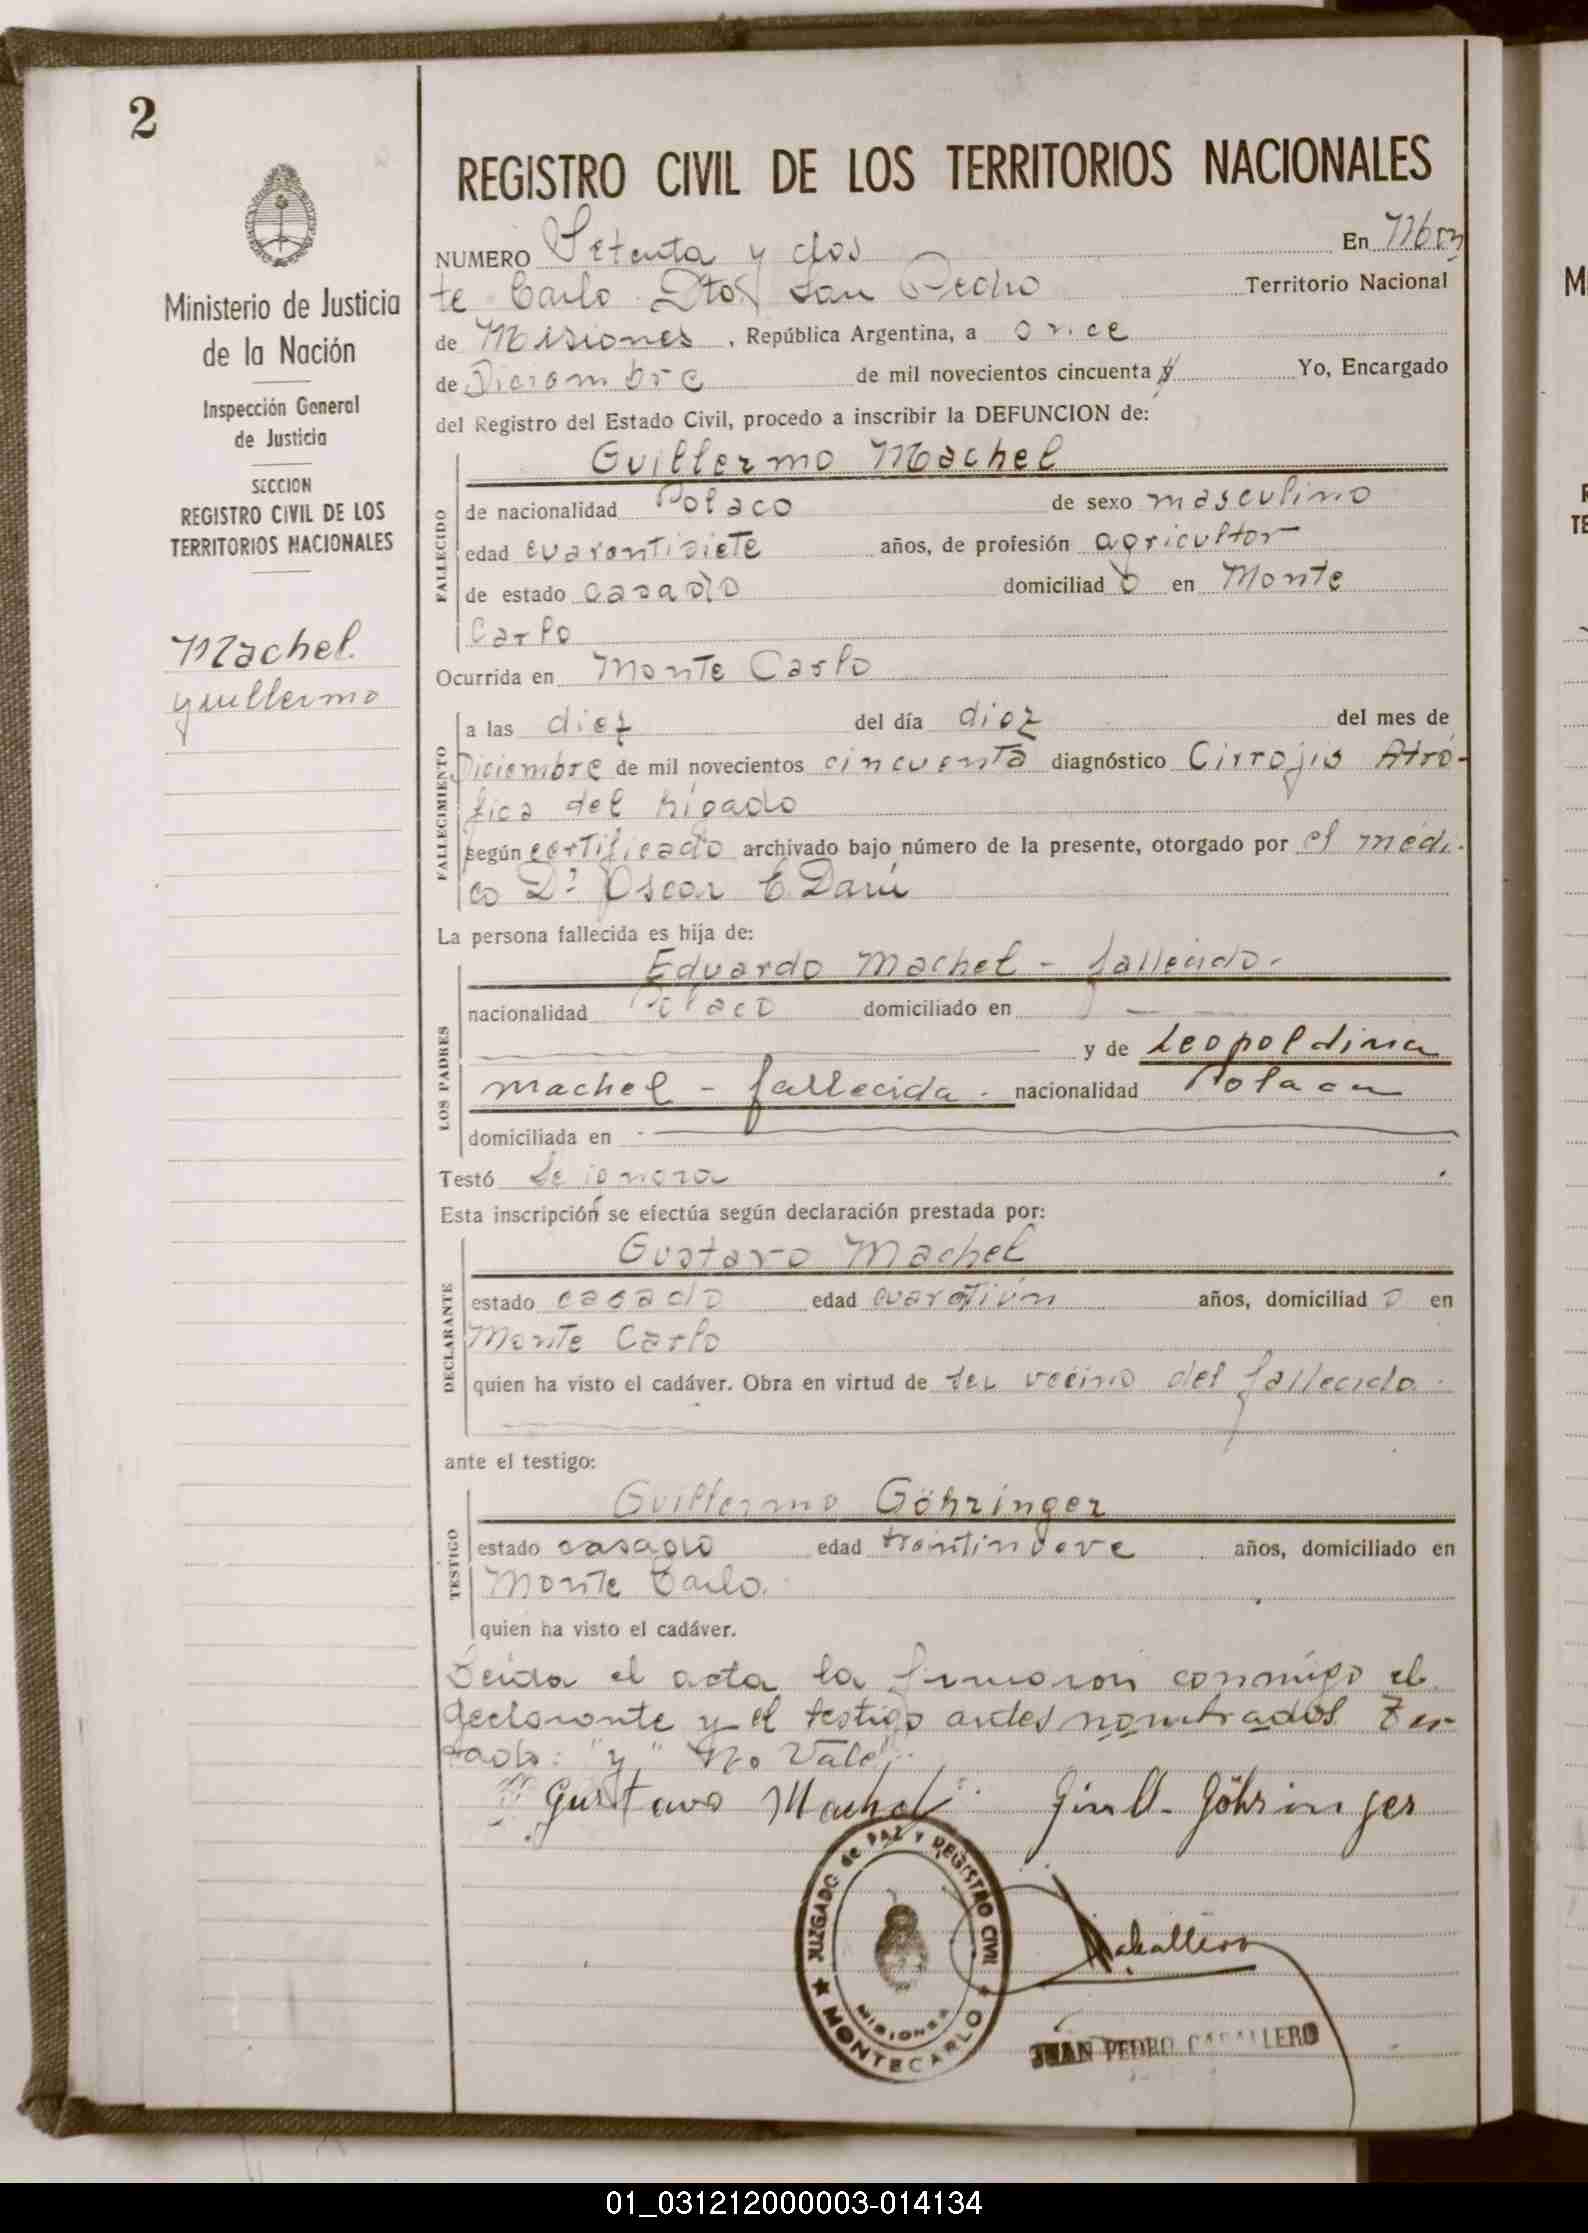 2
Ministerio de Justicia
de la Nación
Inspección General
de Justicia
SECCION
REGISTRO CIVIL DE LOS
TERRITORIOS NACIONALES
Machel.
Guillermo
REGISTRO CIVIL DE LOS TERRITORIOS NACIONALES
NUMERO Setenta y dos En Mon
te Carlo Dto San Pedro Territorio Nacional
de Misiones, República Argentina, a once
de Diciembre de mil novecientos cincuenta y Yo, Encargado
del Registro del Estado Civil, procedo a inscribir la DEFUNCION de:
Guillermo Machel
FALLECIDO
de nacionalidad Polaco de sexo masculino
edad cuarentisiete años, de profesión agricultor
de estado casado domiciliado en Monte
Carlo
Ocurrida en Monte Carlo
FALLECIMIENTO
a las diez del día diez del mes de
Diciembre de mil novecientos cincuenta diagnóstico Cirrosis Atró-
fica del hígado
según certificado archivado bajo número de la presente, otorgado por el médi-
co Dr. Oscar C Darú
La persona fallecida es hija de:
LOS PADRES
Eduardo Machel - fallecido.
nacionalidad Polaco domiciliado en
y de Leopoldina
Machel - fallecida. nacionalidad Polaca
domiciliada en
Testó Se ignora
Esta inscripción se efectúa según declaración prestada por:
DECLARANTE
Gustavo Machel
estado casado edad años, domiciliado en
Monte Carlo
quien ha visto el cadáver. Obra en virtud de ser vecino del fallecido.
ante el testigo:
TESTIGO
Guillermo Göhringer
estado casado edad treintinueve años, domiciliado en
Monte Carlo.
quien ha visto el cadáver.
Leida el acta la firmaron conmigo el
declarante y el testigo antes nombrados Tes-
tado: "y" No Vale".
Gustavo Machel Guill. Göhringer
JUZGADO de PAZ Y REGISTRO CIVIL
MISIONES
MONTECARLO
Caballero
JUAN PEDRO CABALLERO
M
TE
01_031212000003-014134